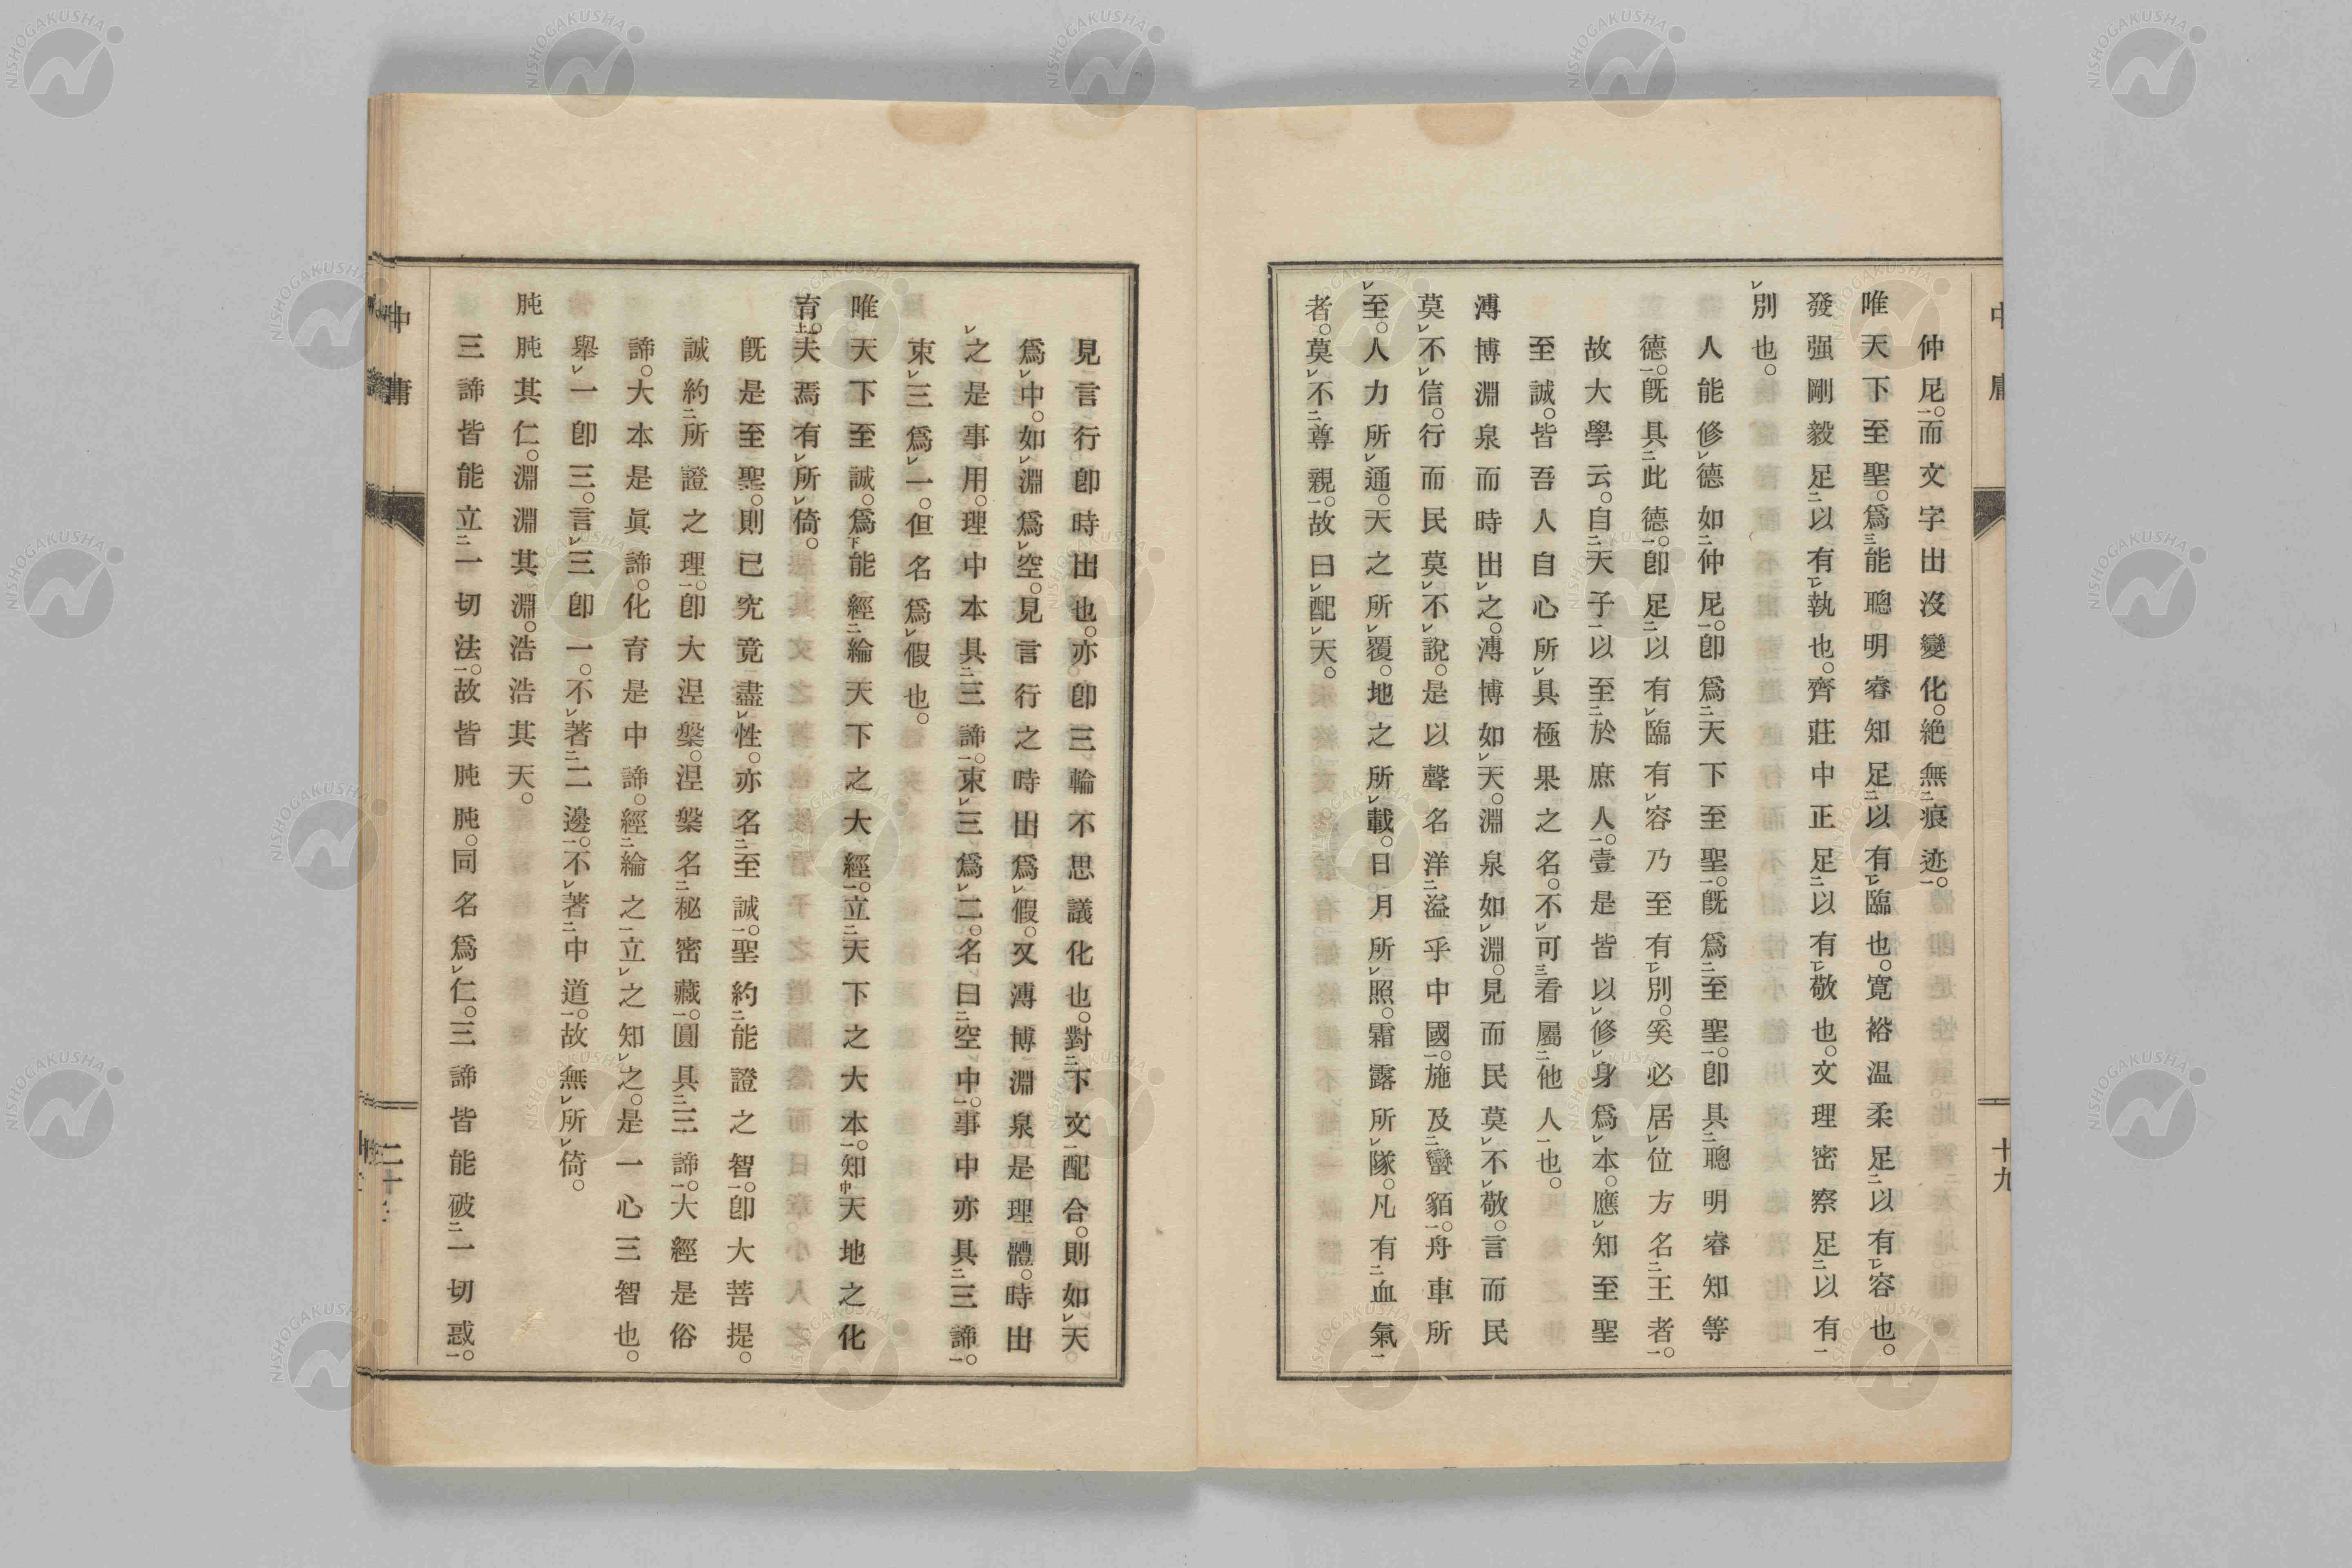 仲尼。而文字出沒變化。絕無痕迹。
唯天下至聖。爲能聰明睿知足以有臨也。寬裕温柔足以有容也。
發强剛毅足以有執也。齊莊中正足以有敬也。文理密察足以有
別也。
人能修德如仲尼。卽爲天下至聖。旣爲至聖。卽具聰明睿知等
德。旣具此德。卽足以有臨有容乃至有別。奚必居位方名王者。
故大學云。自天子以至於庶人。壹是皆以修身爲本。應知至聖
至誠。皆吾人自心所具極果之名。不可看屬他人也。
溥博淵泉而時出之。溥博如天。淵泉如淵。見而民莫不敬。言而民
莫不信。行而民莫不說。是以聲名洋溢乎中國。施及蠻貊。舟車所
至。人力所通。天之所覆。地之所載。日月所照。霜露所隊。凡有血氣
者。莫不尊親。故曰配天。
中庸
十九
見言行卽時出也。亦卽三輪不思議化也。對下文配合。則如天
爲中。如淵爲空。見言行之時出爲假。又溥博淵泉是理體。時出
之是事用。理中本具三諦。束三爲二。名曰空中。事中亦具三諦。
束三爲一。但名爲假也。
唯天下至誠。爲能經綸天下之大經。立天下之大本。知天地之化
育。夫焉有所倚。
旣是至聖。則已究竟盡性。亦名至誠。聖約能證之智。卽大菩提。
誠約所證之理。卽大涅槃。涅槃名秘密藏。圓具三諦。大經是俗
諦。大本是眞諦。化育是中諦。經綸之立之知之。是一心三智也。
舉一卽三。言三卽一。不著二邊。不著中道。故無所倚。
肫肫其仁。淵淵其淵。浩浩其天。
三諦皆能立一切法。故皆肫肫。同名爲仁。三諦皆能破一切惑。
中庸
二十
NISHOGAKUSHA